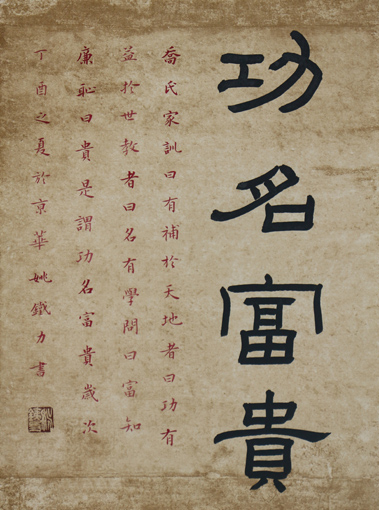 功名富貴
喬氏家訓曰有補於天地者曰功有
益於世教者曰名有學問曰富知
廉恥曰貴是謂功名富貴歲次
丁酉之夏於京華姚鐵力書